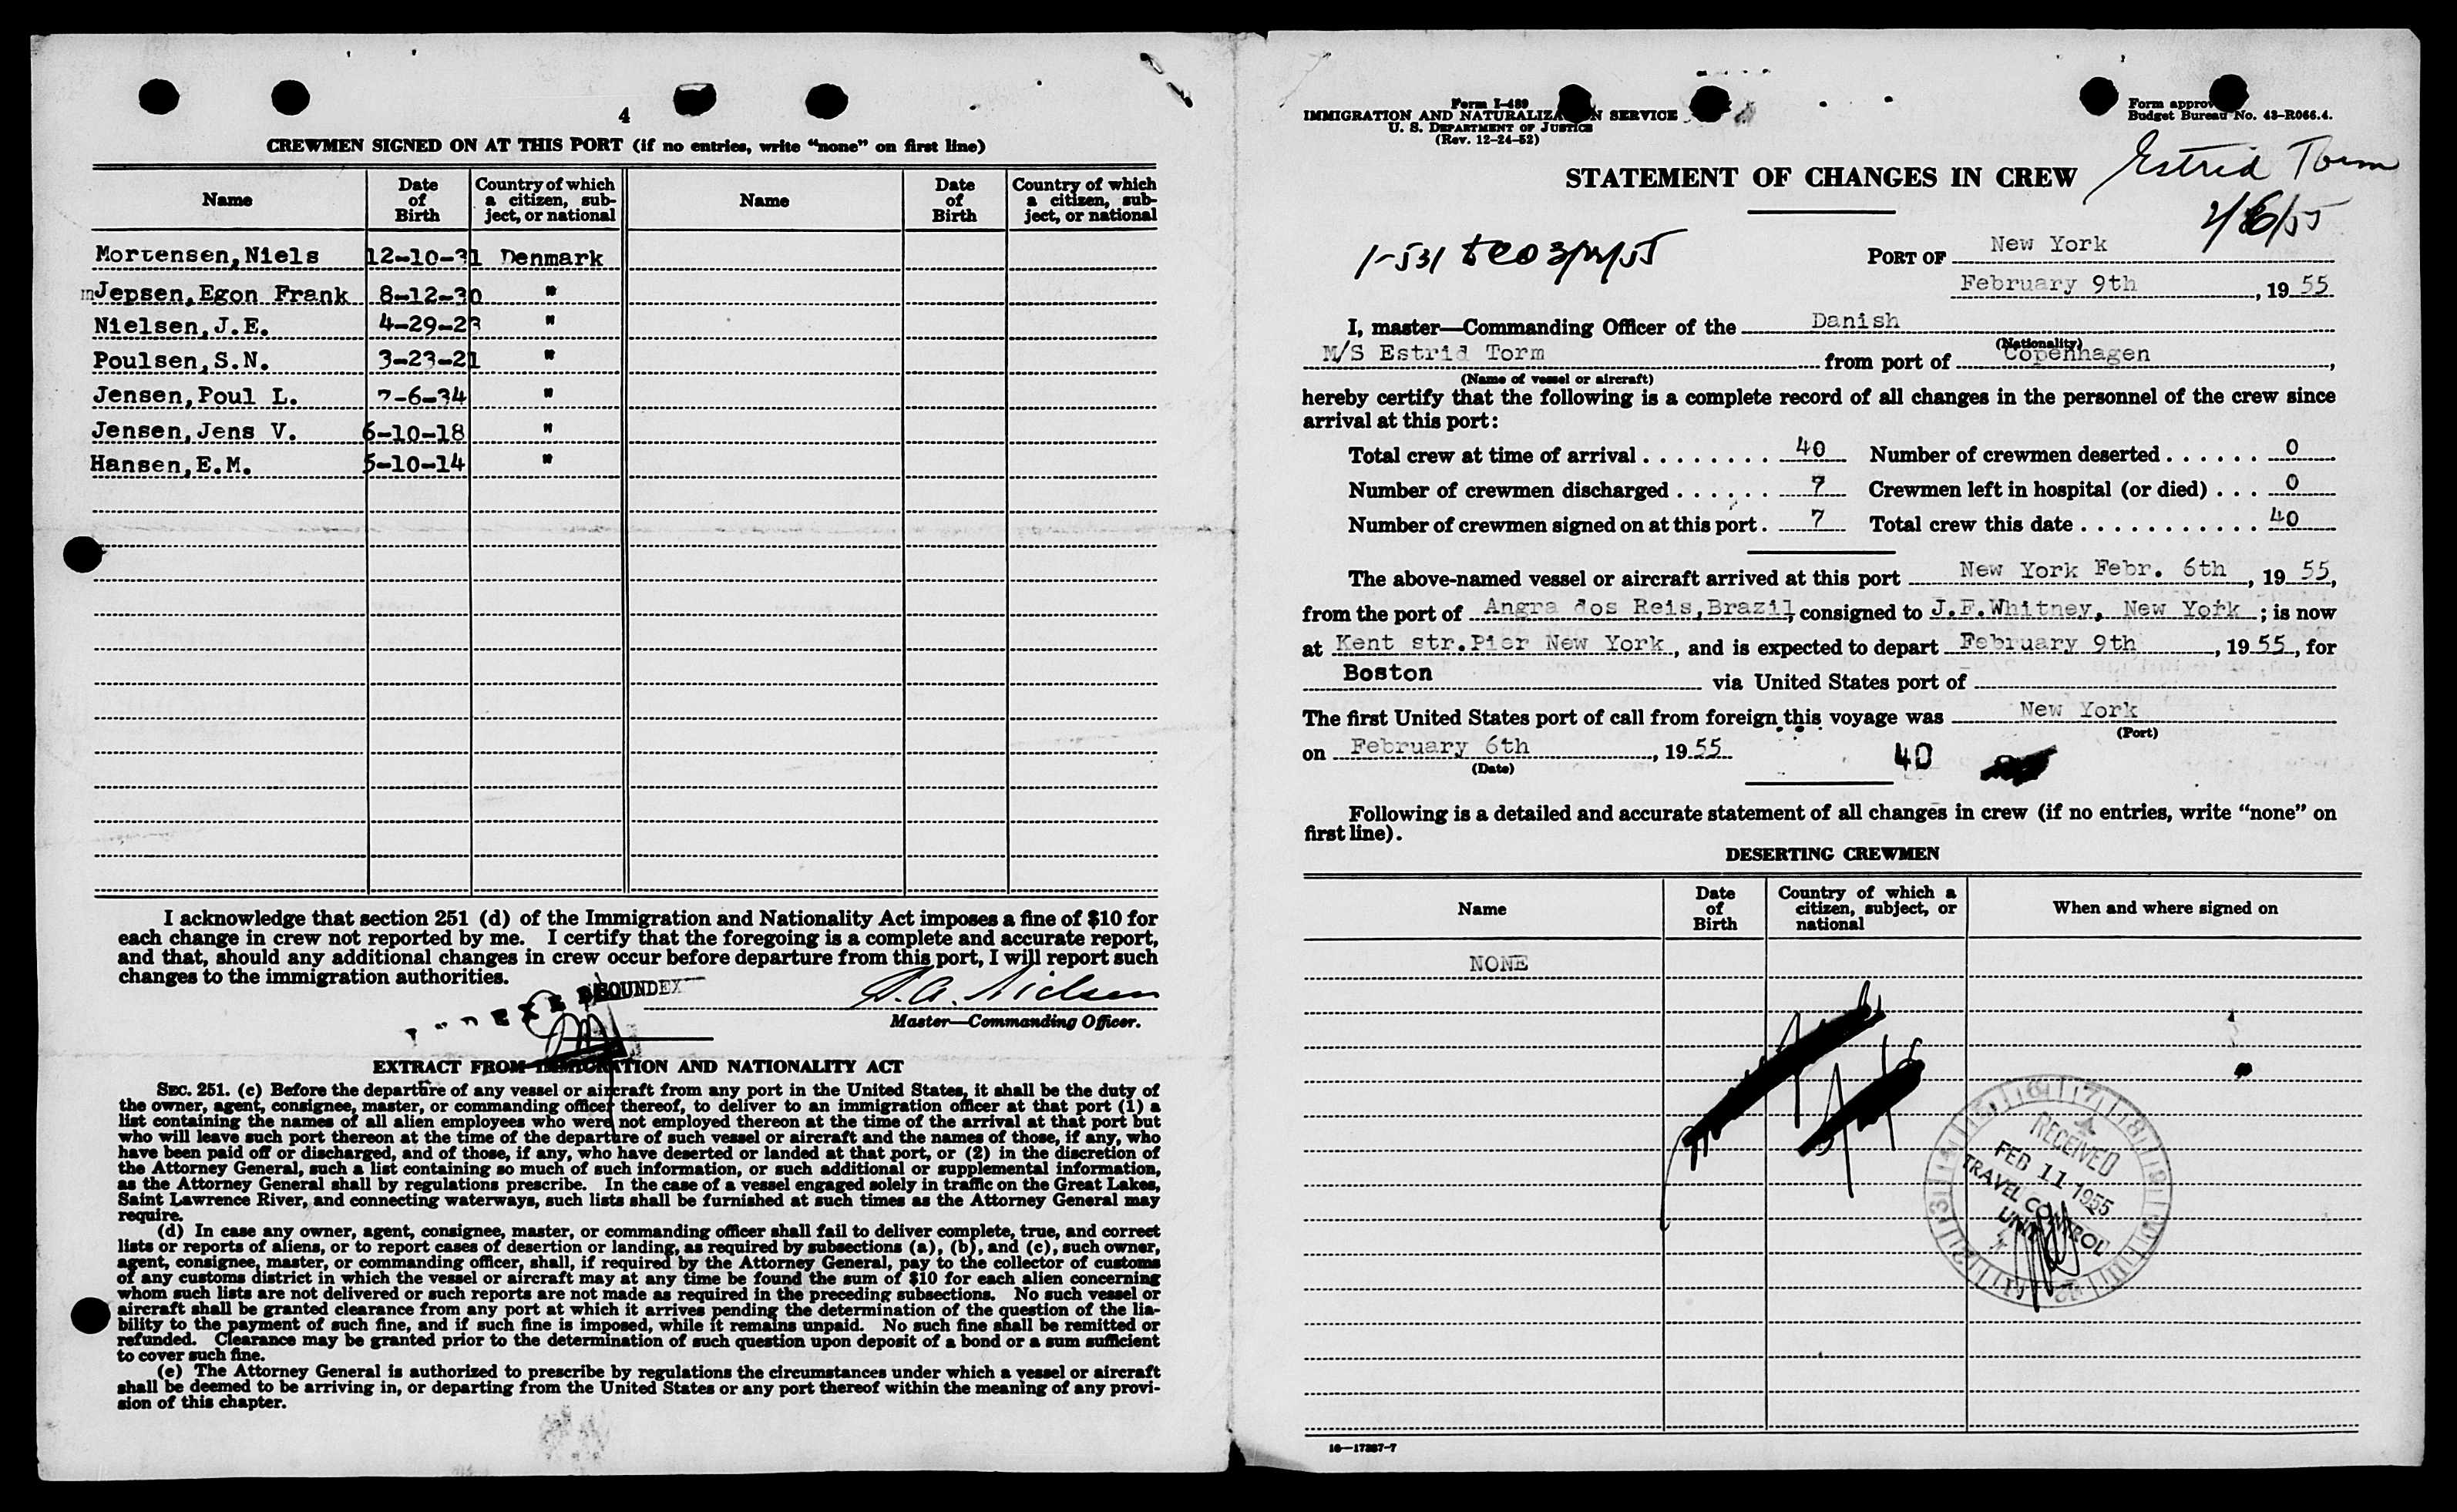 4
CREWMEN SIGNED ON AT THIS PORT (if no entries, write “none” on first line)
Name
Date of Birth
Country of which a citizen, sub-ject, or national
Name
Date of Birth
Country of which a citizen, sub-ject, or national
Mortensen, Niels 12-10-31 Denmark
Jepsen, Egon Frank 8-12-30 "
Nielsen, J.E. 4-29-23 "
Poulsen, S.N. 3-23-21 "
Jensen, Poul L. 7-6-34 "
Jensen, Jens V. 6-10-18 "
Hansen, E.M. 5-10-14 "
I acknowledge that section 251 (d) of the Immigration and Nationality Act imposes a fine of $10 for
each change in crew not reported by me. I certify that the foregoing is a complete and accurate report,
and that, should any additional changes in crew occur before departure from this port, I will report such
changes to the immigration authorities.
SOUNDEX
Nielsen
Master—Commanding Officer.
EXTRACT FROM IMMIGRATION AND NATIONALITY ACT
SEC. 251. (c) Before the departure of any vessel or aircraft from any port in the United States, it shall be the duty of
the owner, agent, consignee, master, or commanding officer thereof, to deliver to an immigration officer at that port (1) a
list containing the names of all alien employees who were not employed thereon at the time of the arrival at that port but
who will leave such port thereon at the time of the departure of such vessel or aircraft and the names of those, if any, who
have been paid off or discharged, and of those, if any, who have deserted or landed at that port, or (2) in the discretion of
the Attorney General, such a list containing so much of such information, or such additional or supplemental information,
as the Attorney General shall by regulations prescribe. In the case of a vessel engaged solely in traffic on the Great Lakes,
Saint Lawrence River, and connecting waterways, such lists shall be furnished at such times as the Attorney General may
require.
(d) In case any owner, agent, consignee, master, or commanding officer shall fail to deliver complete, true, and correct
lists or reports of aliens, or to report cases of desertion or landing, as required by subsections (a), (b), and (c), such owner,
agent, consignee, master, or commanding officer, shall, if required by the Attorney General, pay to the collector of customs
of any customs district in which the vessel or aircraft may at any time be found the sum of $10 for each alien concerning
whom such lists are not delivered or such reports are not made as required in the preceding subsections. No such vessel or
aircraft shall be granted clearance from any port at which it arrives pending the determination of the question of the lia-
bility to the payment of such fine, and if such fine is imposed, while it remains unpaid. No such fine shall be remitted or
refunded. Clearance may be granted prior to the determination of such question upon deposit of a bond or a sum sufficient
to cover such fine.
(e) The Attorney General is authorized to prescribe by regulations the circumstances under which a vessel or aircraft
shall be deemed to be arriving in, or departing from the United States or any port thereof within the meaning of any provi-
sion of this chapter.
Form I-489
IMMIGRATION AND NATURALIZATION SERVICE
U. S. DEPARTMENT OF JUSTICE
(Rev. 12-24-52)
Form approv
Budget Bureau No. 43-R066.4.
STATEMENT OF CHANGES IN CREW
Estrid Torm
2/6/55
PORT OF New York
February 9th, 1955
I, master—Commanding Officer of the Danish
(Nationality)
M/S Estrid Torm from port of Copenhagen,
(Name of vessel or aircraft)
hereby certify that the following is a complete record of all changes in the personnel of the crew since
arrival at this port:
Total crew at time of arrival . . . . . . . . 40 Number of crewmen deserted . . . . . . 0
Number of crewmen discharged . . . . . . 7 Crewmen left in hospital (or died) . . . 0
Number of crewmen signed on at this port . 7 Total crew this date . . . . . . . . . . . 40
The above-named vessel or aircraft arrived at this port New York Febr. 6th, 1955,
from the port of Angra dos Reis, Brazil, consigned to J.F.Whitney, New York ; is now
at Kent str. Pier New York, and is expected to depart February 9th, 1955, for
Boston via United States port of
The first United States port of call from foreign this voyage was New York
(Port)
on February 6th, 1955
(Date)
40
Following is a detailed and accurate statement of all changes in crew (if no entries, write “none” on
first line).
DESERTING CREWMEN
Name
Date of Birth
Country of which a citizen, subject, or national
When and where signed on
NONE
RECEIVED
FEB 11 1955
TRAVEL CONTROL
UNIT
16—17287-7